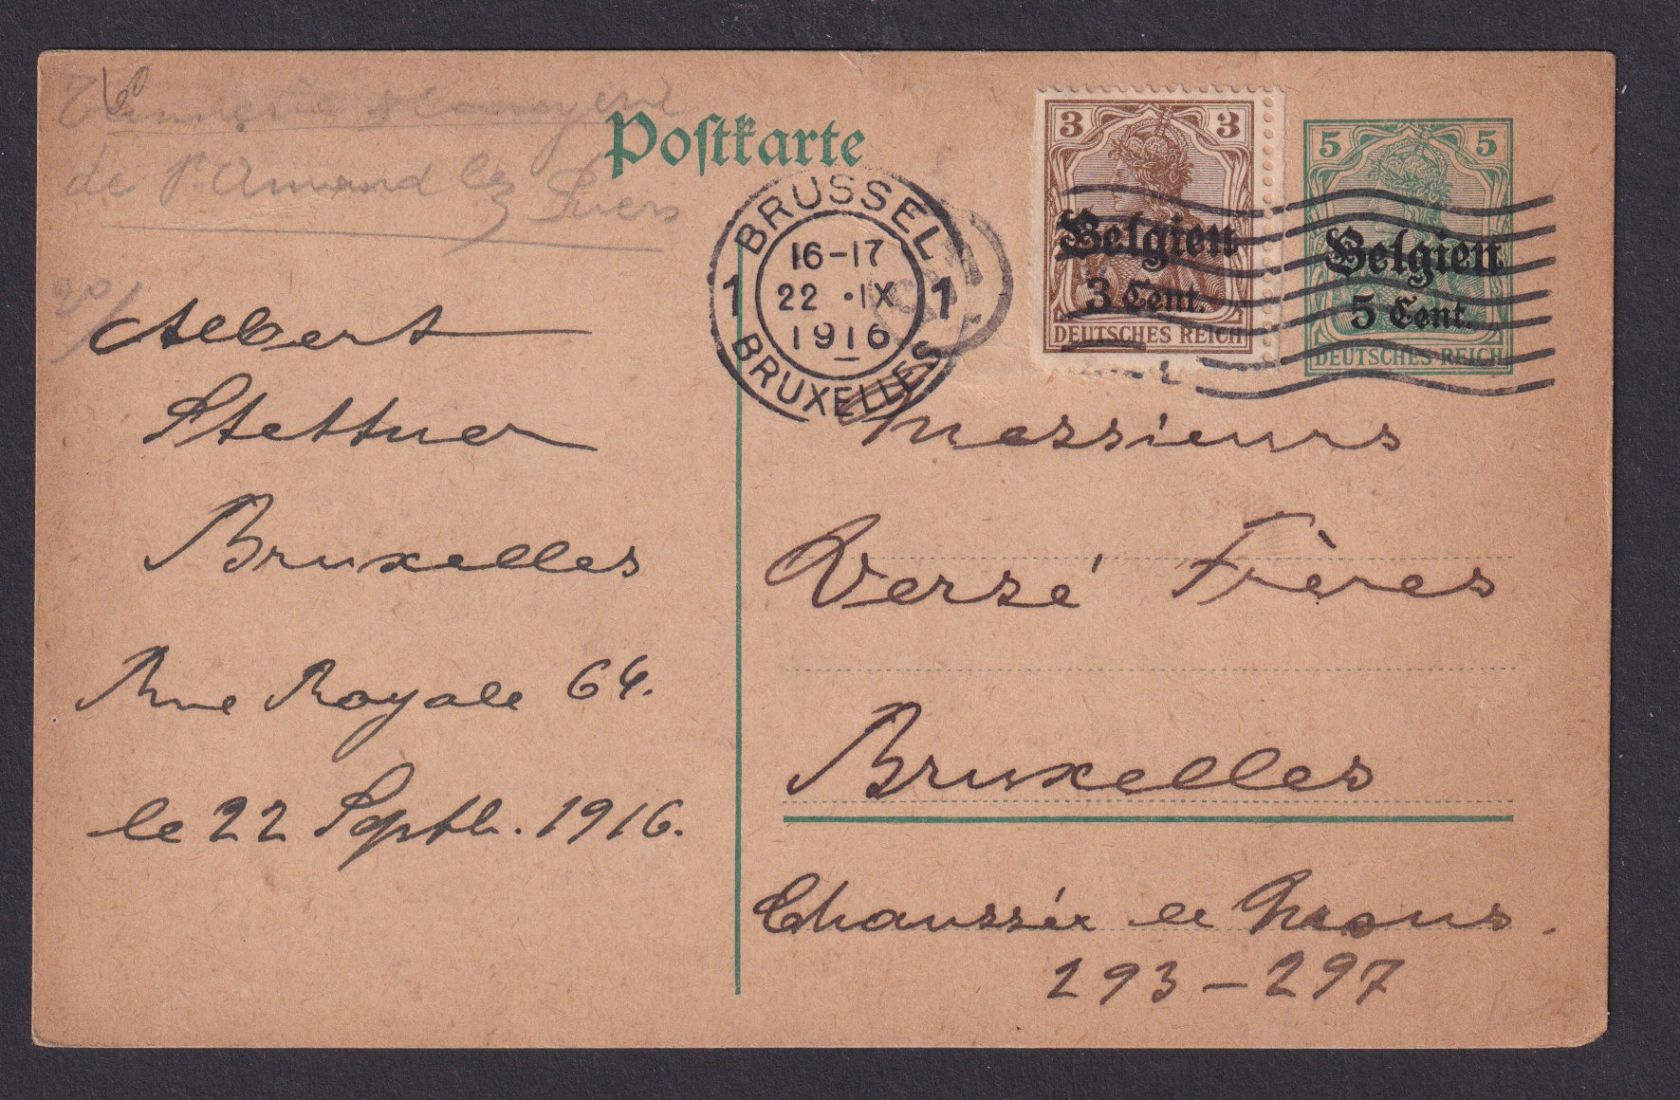 de St Amand lez Puers
Postkarte
BRÜSSEL
1 16-17 1
22 . IX
1916
BRUXELLES
3 3
Belgien
3 Cent.
DEUTSCHES REICH
5 5
Belgien
5 Cent.
DEUTSCHES REICH
Albert
Stettner
Bruxelles
Rue Royale 64.
le 22 Septb. 1916.
Messieurs
Versé Frères
Bruxelles
Chaussée de Mons.
293-297